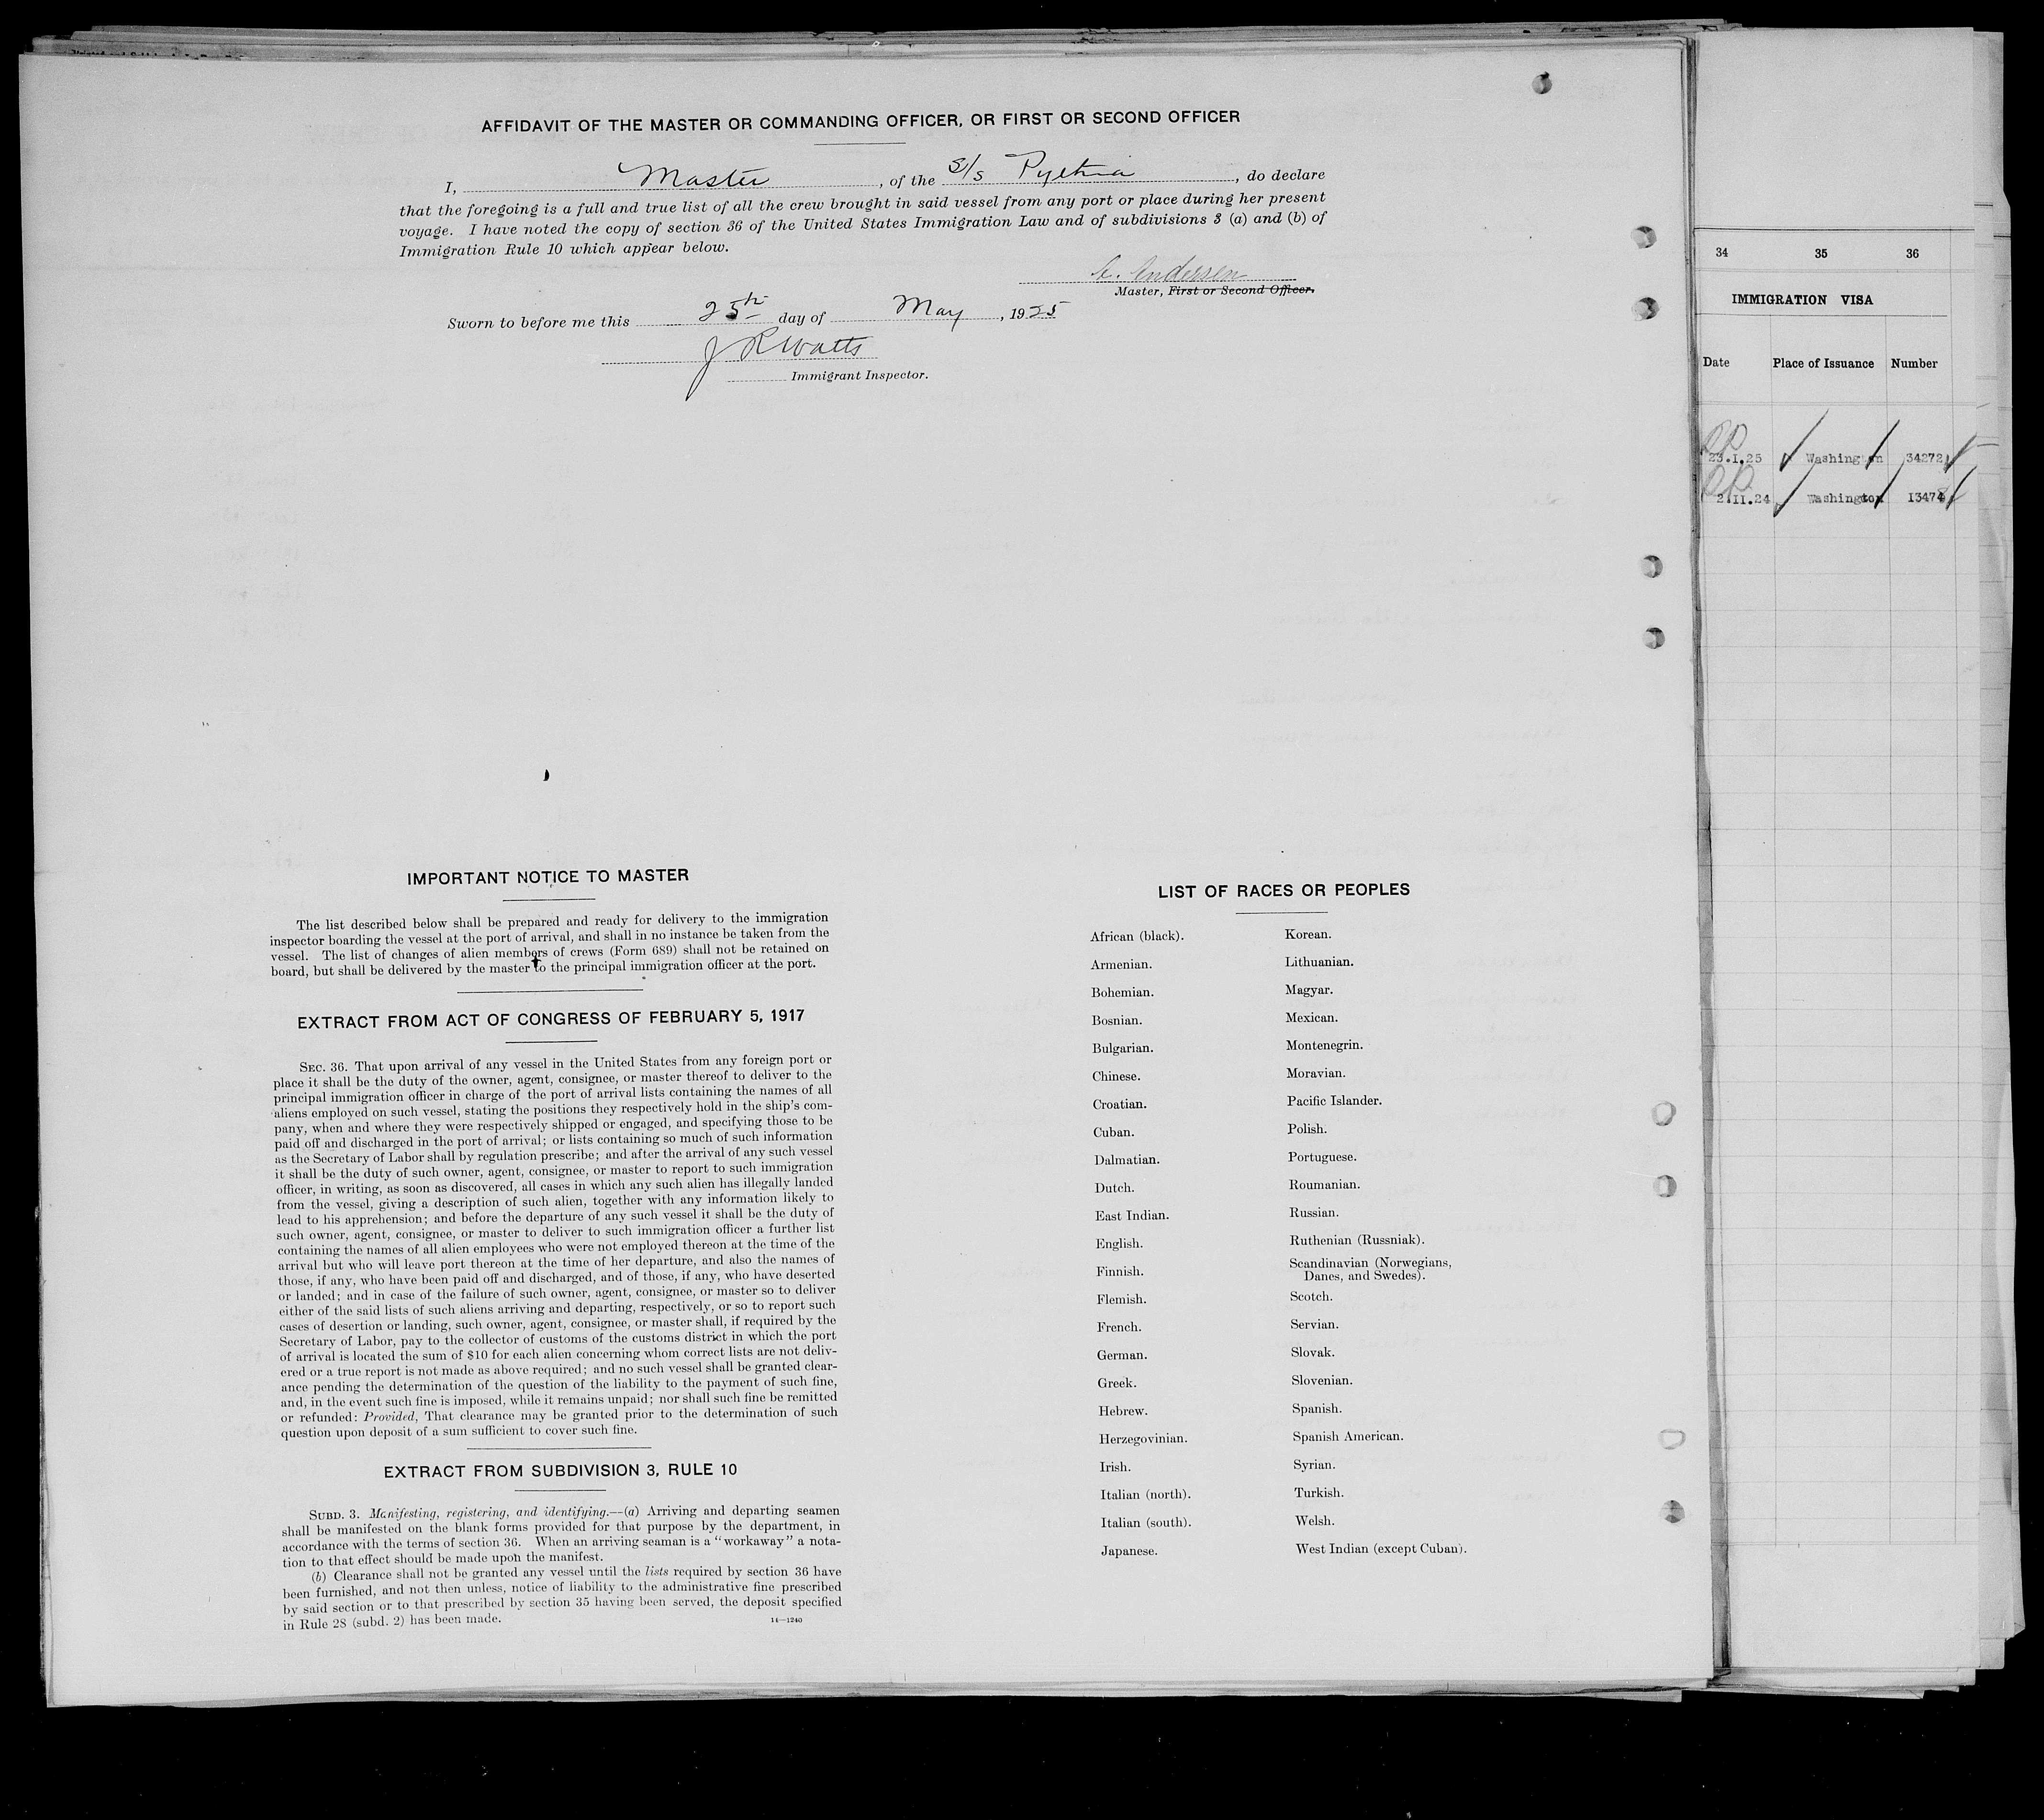 AFFIDAVIT OF THE MASTER OR COMMANDING OFFICER, OR FIRST OR SECOND OFFICER
I, Master, of the S/s Pythia, do declare
that the foregoing is a full and true list of all the crew brought in said vessel from any port or place during her present
voyage. I have noted the copy of section 36 of the United States Immigration Law and of subdivisions 3 (a) and (b) of
Immigration Rule 10 which appear below.
Andersen
Master, First or Second Officer.
Sworn to before me this 25th day of May, 1925
J R Watts
Immigrant Inspector.
IMPORTANT NOTICE TO MASTER
The list described below shall be prepared and ready for delivery to the immigration
inspector boarding the vessel at the port of arrival, and shall in no instance be taken from the
vessel. The list of changes of alien members of crews (Form 689) shall not be retained on
board, but shall be delivered by the master to the principal immigration officer at the port.
EXTRACT FROM ACT OF CONGRESS OF FEBRUARY 5, 1917
SEC. 36. That upon arrival of any vessel in the United States from any foreign port or
place it shall be the duty of the owner, agent, consignee, or master thereof to deliver to the
principal immigration officer in charge of the port of arrival lists containing the names of all
aliens employed on such vessel, stating the positions they respectively hold in the ship's com-
pany, when and where they were respectively shipped or engaged, and specifying those to be
paid off and discharged in the port of arrival; or lists containing so much of such information
as the Secretary of Labor shall by regulation prescribe; and after the arrival of any such vessel
it shall be the duty of such owner, agent, consignee, or master to report to such immigration
officer, in writing, as soon as discovered, all cases in which any such alien has illegally landed
from the vessel, giving a description of such alien, together with any information likely to
lead to his apprehension; and before the departure of any such vessel it shall be the duty of
such owner, agent, consignee, or master to deliver to such immigration officer a further list
containing the names of all alien employees who were not employed thereon at the time of the
arrival but who will leave port thereon at the time of her departure, and also the names of
those, if any, who have been paid off and discharged, and of those, if any, who have deserted
or landed; and in case of the failure of such owner, agent, consignee, or master so to deliver
either of the said lists of such aliens arriving and departing, respectively, or so to report such
cases of desertion or landing, such owner, agent, consignee, or master shall, if required by the
Secretary of Labor, pay to the collector of customs of the customs district in which the port
of arrival is located the sum of $10 for each alien concerning whom correct lists are not deliv-
ered or a true report is not made as above required; and no such vessel shall be granted clear-
ance pending the determination of the question of the liability to the payment of such fine,
and, in the event such fine is imposed, while it remains unpaid; nor shall such fine be remitted
or refunded: Provided, That clearance may be granted prior to the determination of such
question upon deposit of a sum sufficient to cover such fine.
EXTRACT FROM SUBDIVISION 3, RULE 10
SUBD. 3. Manifesting, registering, and identifying.—(a) Arriving and departing seamen
shall be manifested on the blank forms provided for that purpose by the department, in
accordance with the terms of section 36. When an arriving seaman is a "workaway" a nota-
tion to that effect should be made upon the manifest.
(b) Clearance shall not be granted any vessel until the lists required by section 36 have
been furnished, and not then unless, notice of liability to the administrative fine prescribed
by said section or to that prescribed by section 35 having been served, the deposit specified
in Rule 28 (subd. 2) has been made.
14—1240
LIST OF RACES OR PEOPLES
African (black).
Armenian.
Bohemian.
Bosnian.
Bulgarian.
Chinese.
Croatian.
Cuban.
Dalmatian.
Dutch.
East Indian.
English.
Finnish.
Flemish.
French.
German.
Greek.
Hebrew.
Herzegovinian.
Irish.
Italian (north).
Italian (south).
Japanese.
Korean.
Lithuanian.
Magyar.
Mexican.
Montenegrin.
Moravian.
Pacific Islander.
Polish.
Portuguese.
Roumanian.
Russian.
Ruthenian (Russniak).
Scandinavian (Norwegians,
Danes, and Swedes).
Scotch.
Servian.
Slovak.
Slovenian.
Spanish.
Spanish American.
Syrian.
Turkish.
Welsh.
West Indian (except Cuban).
34 35 36
IMMIGRATION VISA
Date Place of Issuance Number
23.I.25 Washington 34272
2.II.24 Washington